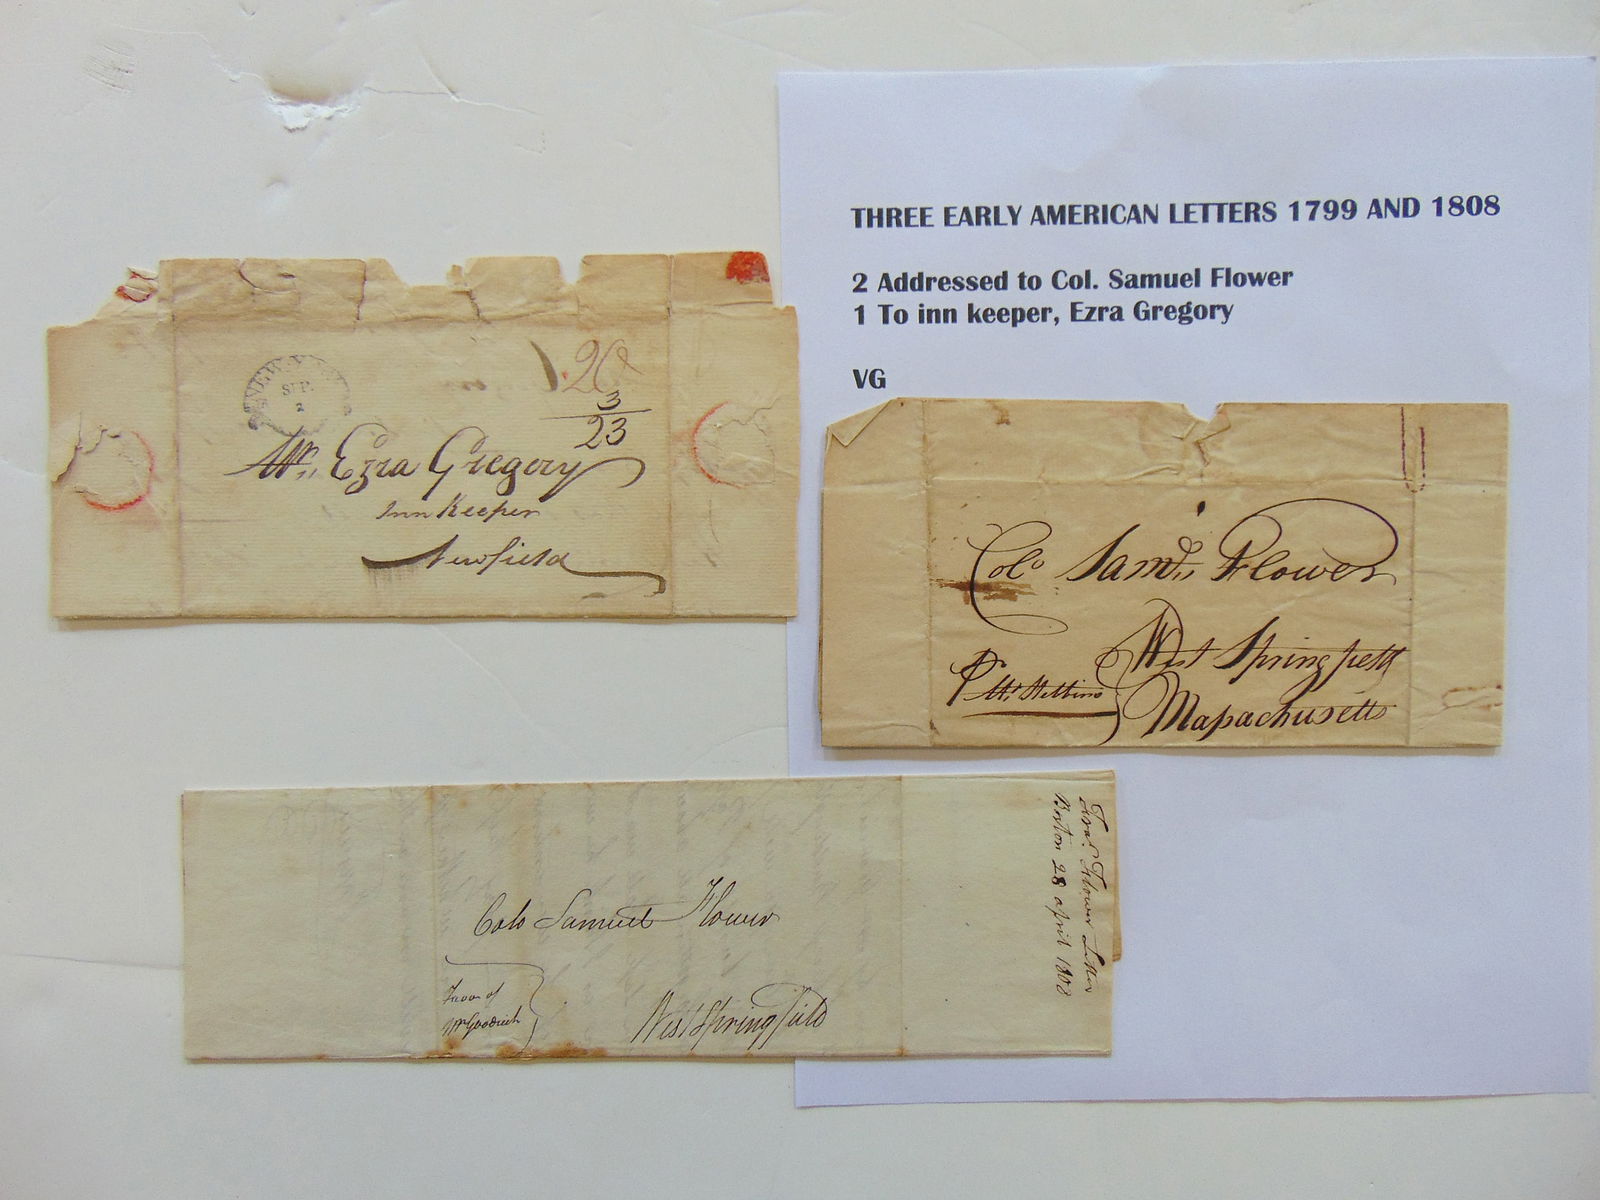 THREE EARLY AMERICAN LETTERS 1799 AND 1808
2 Addressed to Col. Samuel Flower
1 To inn keeper, Ezra Gregory
VG
NEW-Y
SEP.
2
20
3
23
Mr. Ezra Gregory
Inn Keeper
Newfield
Colo Samll Flower
West Springfield
Massachusetts
Pr Mr
Colo Samuel Flower
Favor of
Mr Goodrich
West Springfield
Flower Letter
Boston 28 april 1808